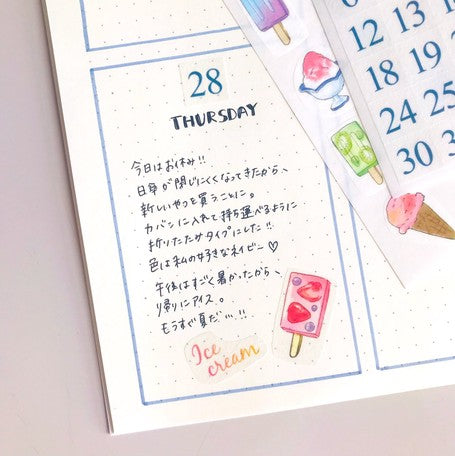 28
THURSDAY
今日はお休み!!
日傘が閉じにくくなってきたから、
新しいやつを買うことに。
カバンに入れて持ち運べるように
折りたたみタイプにした!!
色は私の好きなネイビー♡
午後はすごく暑かったから、
帰りにアイス。
もうすぐ夏だ…!!
Ice
cream
6
12 13
18 19
24 25
30 31